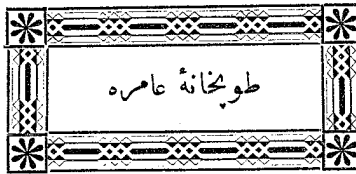 طوپخانهٔ عامره